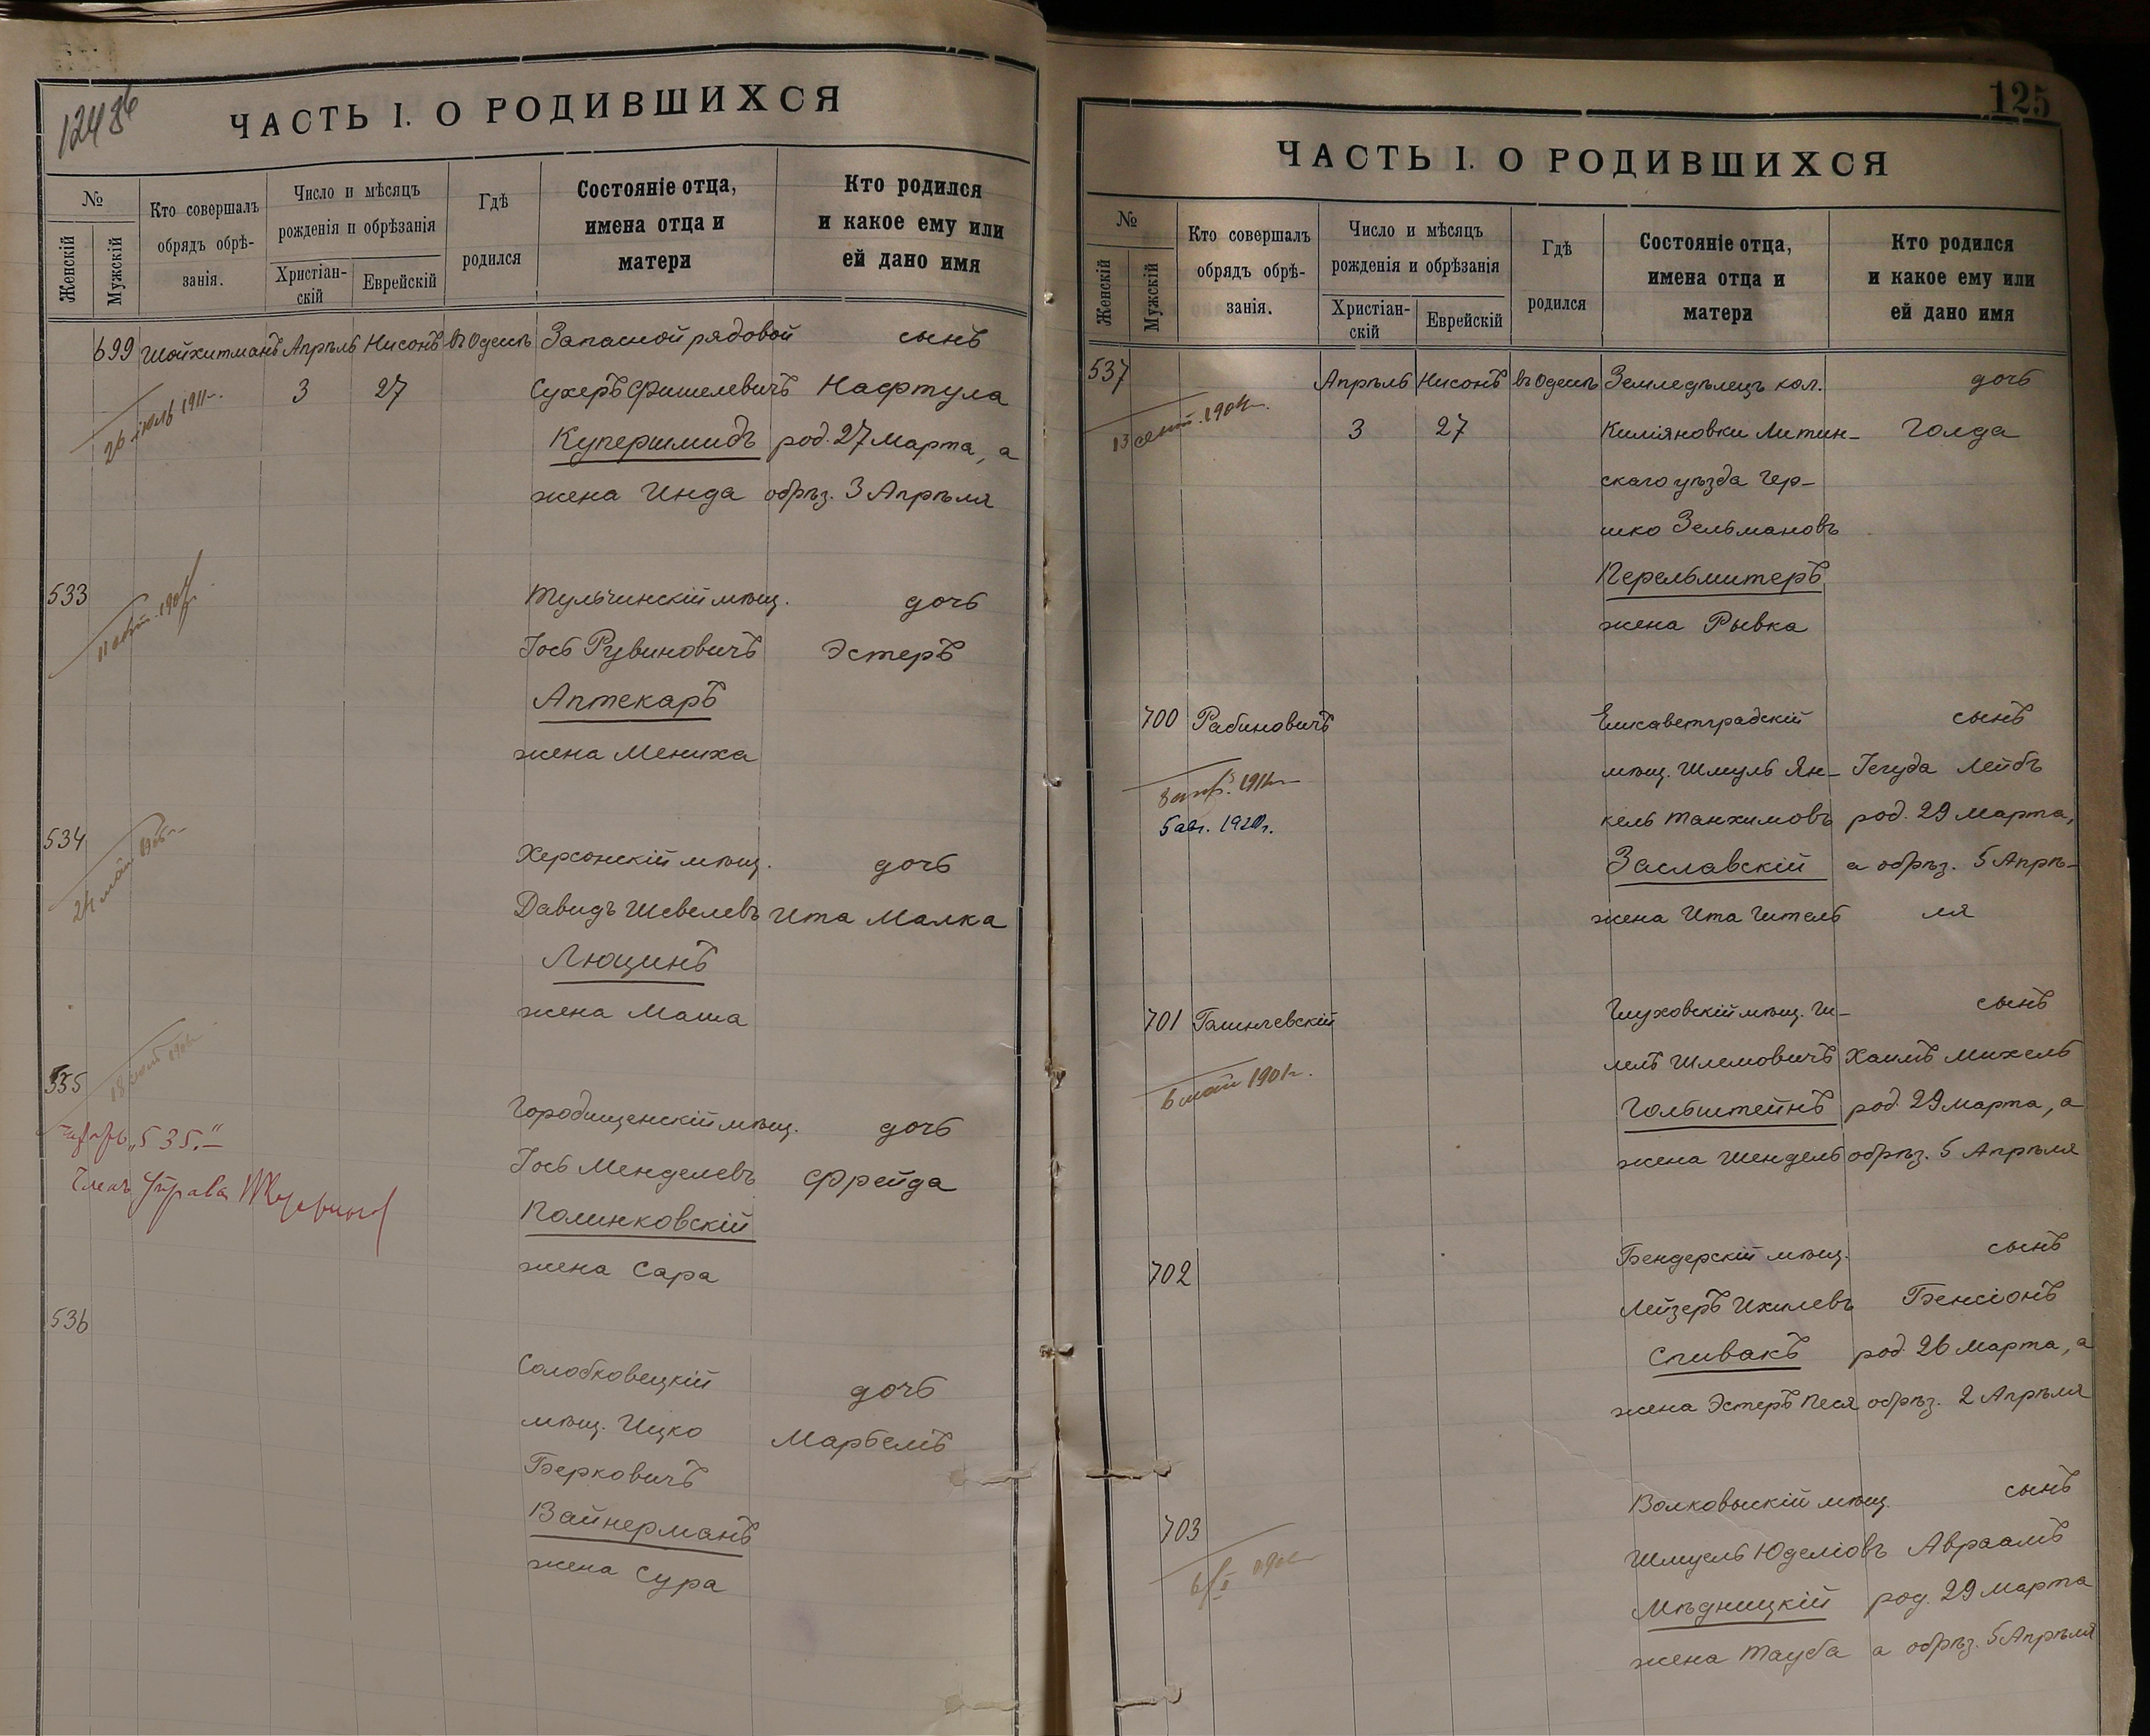 ЧАСТЬ I. О РОДИВШИХСЯ
№
Женскій
Мужскій
Кто совершалъ
обрядъ обрѣ-
занія.
Число и мѣсяцъ
рожденія и обрѣзанія
Христіан-
скій
Еврейскій
Гдѣ
родился
Состояніе отца,
имена отца и
матери
Кто родился
и какое ему или
ей дано имя
699 Шойхитманъ Апрѣль Нисонъ въ Одессѣ Запасной рядовой сынъ
3 27 Сухеръ Фишелевичъ Нафтула
26 іюль 1911 г.
Купершмидъ род. 27 Марта, а
жена Инда обрѣз. 3 Апрѣля
533 Тульчинскій мѣщ. дочь
Іось Рувиновичъ Эстеръ
Аптекаръ
жена Мениха
534 Херсонскій мѣщ. дочь
24 май
Давидъ Шевелевъ Ита Малка
Люцинъ
жена Маша
535 Городищенскій мѣщ. дочь
„535.“
Членъ Управы
Іось Менделевъ Фрейда
Полинковскій
жена Сара
536 Солобковецкій дочь
мѣщ. Ицко Марбемъ
Берковичъ
Вайнерманъ
жена Сура
125
ЧАСТЬ I. О РОДИВШИХСЯ
№
Женскій
Мужскій
Кто совершалъ
обрядъ обрѣ-
занія.
Число и мѣсяцъ
рожденія и обрѣзанія
Христіан-
скій
Еврейскій
Гдѣ
родился
Состояніе отца,
имена отца и
матери
Кто родился
и какое ему или
ей дано имя
537 Апрѣль Нисонъ въ Одессѣ Земледѣлецъ кол. дочь
13 сент.
3 27 Килияновки Литин- Голда
скаго уѣзда Гер-
шко Зельмановъ
Перельмитеръ
жена Рывка
700 Рабиновичъ Елисаветградскій сынъ
мѣщ. Шмуль Ян- Іегуда Лейбъ
5 авг. 1920 г.
кель Танхимовъ род. 29 Марта,
Заславскій а обрѣз. 5 Апрѣ-
жена Ита Гитель ля
701 Глуховскій мѣщ. Ги- сынъ
6 май 1901 г.
лель Шлемовичъ Хаимъ Михель
Гольштейнъ род. 29 Марта, а
жена Шендель обрѣз. 5 Апрѣля
702 Бендерскій мѣщ. сынъ
Лейзеръ Ихилевъ Бенсіонъ
Спивакъ род. 26 Марта, а
жена Эстеръ Песя обрѣз. 2 Апрѣля
703 Волковыскій мѣщ. сынъ
Шмуель Юделіовъ Авраамъ
Мѣдницкій род. 29 Марта
жена Тауба а обрѣз. 5 Апрѣля